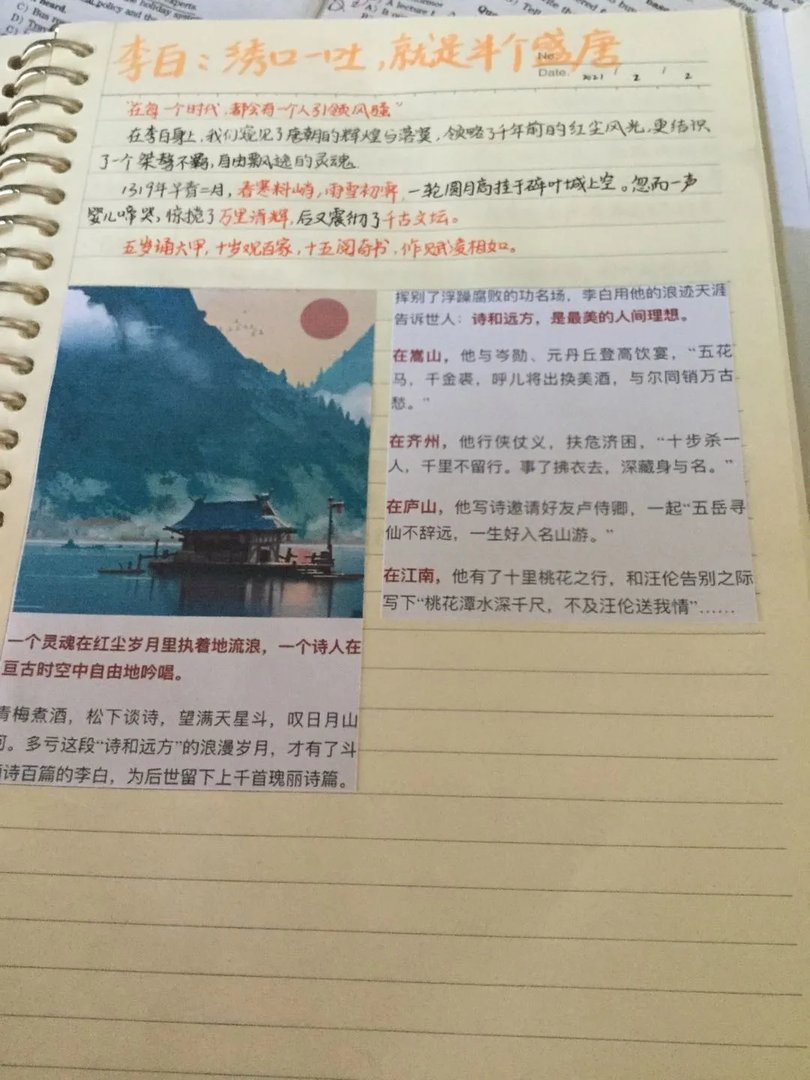 李白：绣口一吐，就是半个盛唐
No.
Date. 2021 / 2 / 2
"在每一个时代，都会有一个人引领风骚"
在李白身上，我们窥见了唐朝的辉煌与落寞，领略了千年前的红尘风光，更结识
了一个桀骜不羁，自由飘逸的灵魂。
1319年早春二月，春寒料峭，雨雪初霁，一轮圆月高挂于碎叶城上空。忽而一声
婴儿啼哭，惊搅了万里清辉，后又震彻了千古文坛。
五岁诵六甲，十岁观百家，十五阅奇书，作赋凌相如。
挥别了浮躁腐败的功名场，李白用他的浪迹天涯
告诉世人：诗和远方，是最美的人间理想。
在嵩山，他与岑勋、元丹丘登高饮宴，“五花
马，千金裘，呼儿将出换美酒，与尔同销万古
愁。”
在齐州，他行侠仗义，扶危济困，“十步杀一
人，千里不留行。事了拂衣去，深藏身与名。”
在庐山，他写诗邀请好友卢侍卿，一起“五岳寻
仙不辞远，一生好入名山游。”
在江南，他有了十里桃花之行，和汪伦告别之际
写下“桃花潭水深千尺，不及汪伦送我情”……
一个灵魂在红尘岁月里执着地流浪，一个诗人在
亘古时空中自由地吟唱。
青梅煮酒，松下谈诗，望满天星斗，叹日月山
河。多亏这段“诗和远方”的浪漫岁月，才有了斗
酒诗百篇的李白，为后世留下上千首瑰丽诗篇。